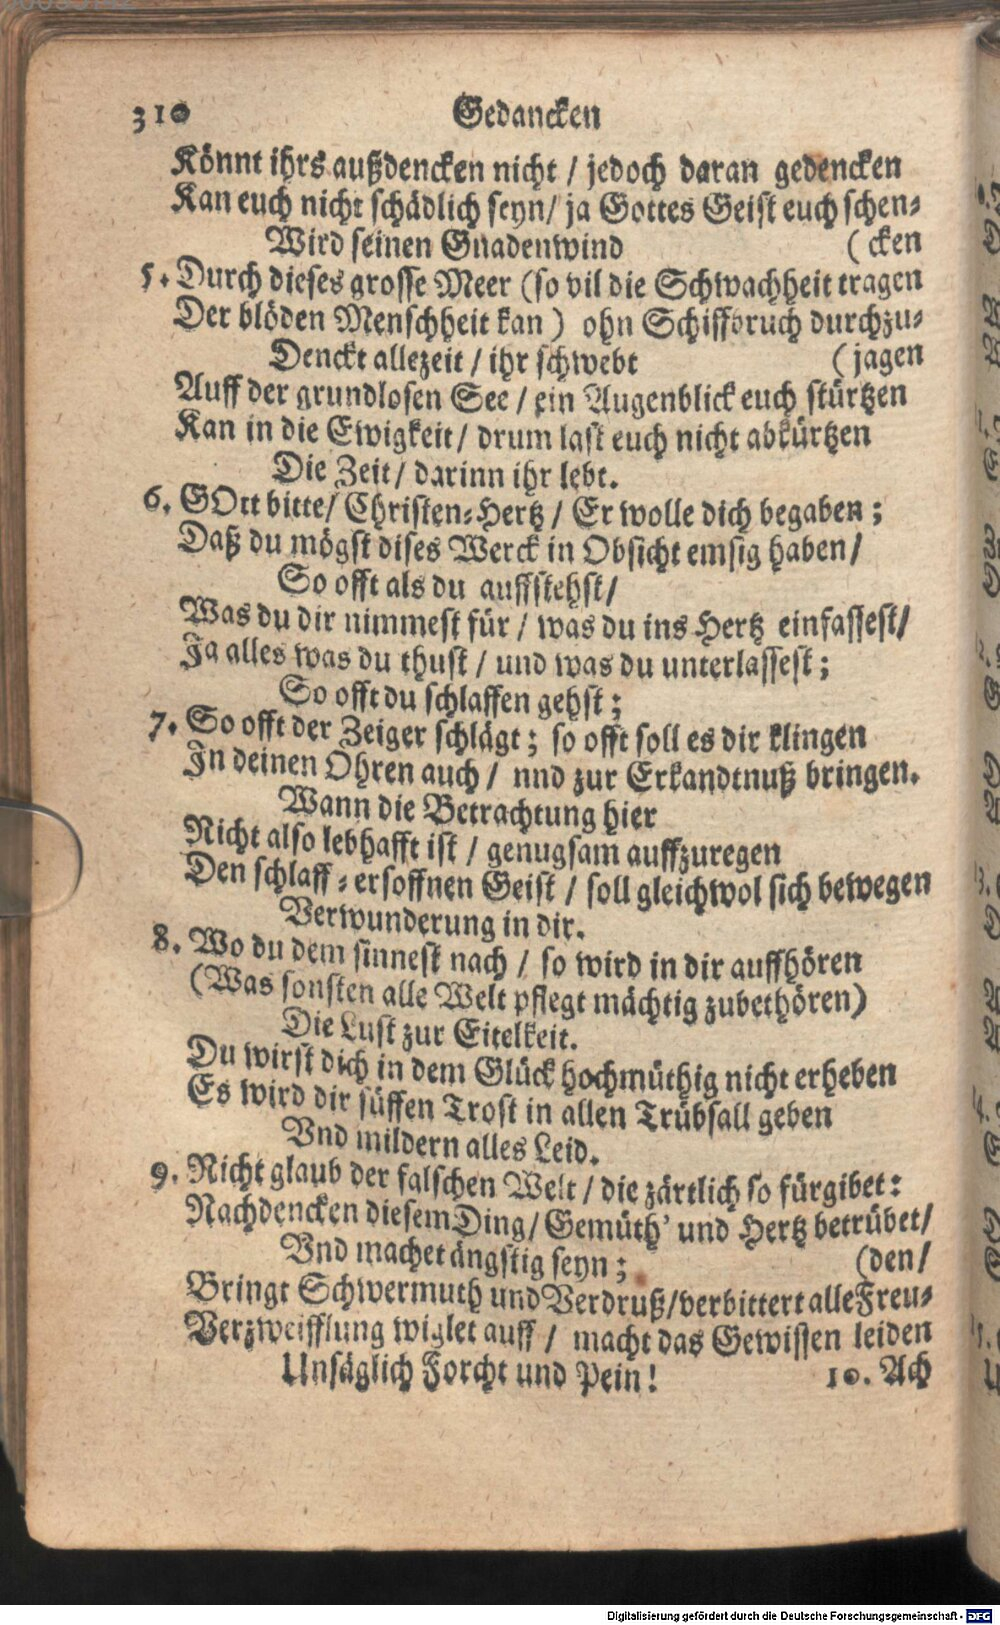 310 Gedancken
Könnt ihrs außdencken nicht / jedoch daran gedencken
Kan euch nicht schädlich seyn / ja Gottes Geist euch schen-
Wird seinen Gnadenwind (cken
5. Durch dieses grosse Meer (so vil die Schwachheit tragen
Der blöden Menschheit kan) ohn Schiffbruch durchzu-
Denckt allezeit / ihr schwebt (jagen
Auff der grundlosen See / ein Augenblick euch stürtzen
Kan in die Ewigkeit / drum last euch nicht abkürtzen
Die Zeit / darinn ihr lebt.
6. GOtt bitte / Christen-Hertz / Er wolle dich begaben;
Daß du mögst dises Werck in Obsicht emsig haben /
So offt als du auffstehst /
Was du dir nimmest für / was du ins Hertz einfassest /
Ja alles was du thust / und was du unterlassest;
So offt du schlaffen gehst;
7. So offt der Zeiger schlägt; so offt soll es dir klingen
In deinen Ohren auch / nnd zur Erkandtnuß bringen.
Wann die Betrachtung hier
Nicht also lebhafft ist / genugsam auffzuregen
Den schlaff-ersoffnen Geist / soll gleichwol sich bewegen
Verwunderung in dir.
8. Wo du dem sinnest nach / so wird in dir auffhören
(Was sonsten alle Welt pflegt mächtig zubethören)
Die Lust zur Eitelkeit.
Du wirst dich in dem Glück hochmüthig nicht erheben
Es wird dir süssen Trost in allen Trübsall geben
Vnd mildern alles Leid.
9. Nicht glaub der falschen Welt / die zärtlich so fürgibet:
Nachdencken diesem Ding / Gemüth' und Hertz betrübet /
Vnd machet ängstig seyn; (den /
Bringt Schwermuth und Verdruß / verbittert alle Freu-
Verzweifflung wiglet auff / macht das Gewissen leiden
Unsäglich Forcht und Pein! 10. Ach
Digitalisierung gefördert durch die Deutsche Forschungsgemeinschaft - DFG